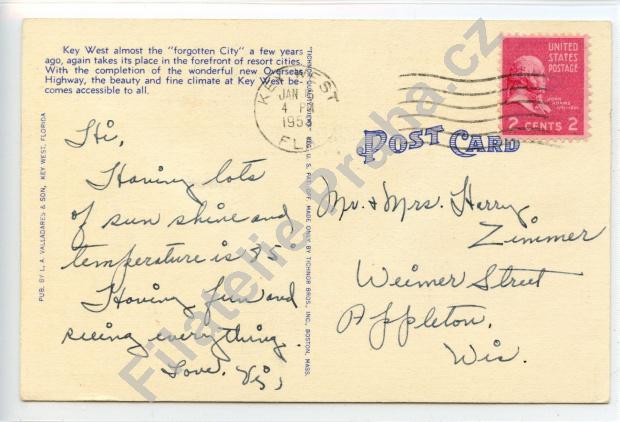 Key West almost the "forgotten City" a few years
ago, again takes its place in the forefront of resort cities.
With the completion of the wonderful new Overseas
Highway, the beauty and fine climate at Key West be-
comes accessible to all.
PUB. BY L. A. VALLADARES & SON, KEY WEST, FLORIDA
Hi,
Having lots
of sun shine and
temperature is 85
Having fun and
seeing everything.
Love,
REG. U. S. PAT. OFF. MADE ONLY BY TICHNOR BROS., INC., BOSTON, MASS.
KEY WEST
JAN
4 PM
1953
FLA
UNITED
STATES
POSTAGE
JOHN
ADAMS
2 CENTS 2
POST CARD
Mr. & Mrs. Harry
Zimmer
Weimer Street
Appleton,
Wis.
Filatelie Praha.cz